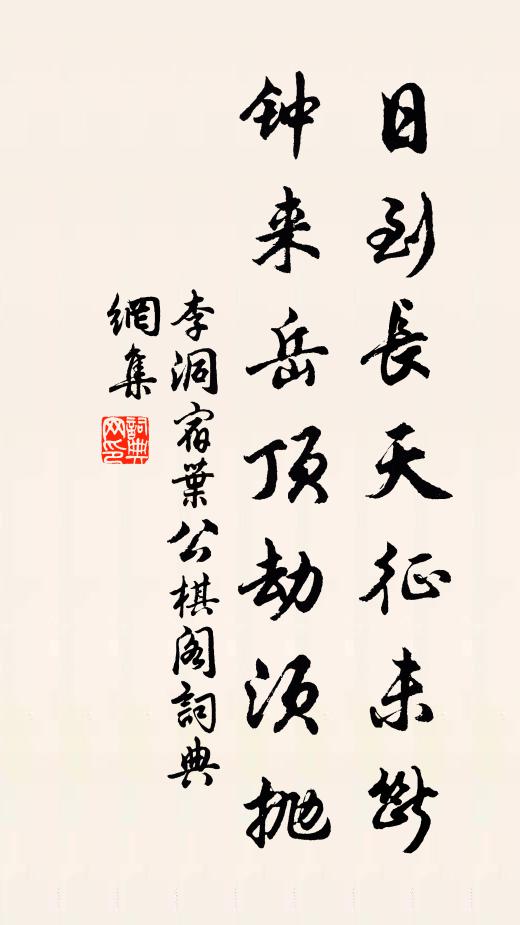 日到長天征未斷
钟来岳頂劫須抛
李洞宿葉公棋阁詞典
網集
詞典网印